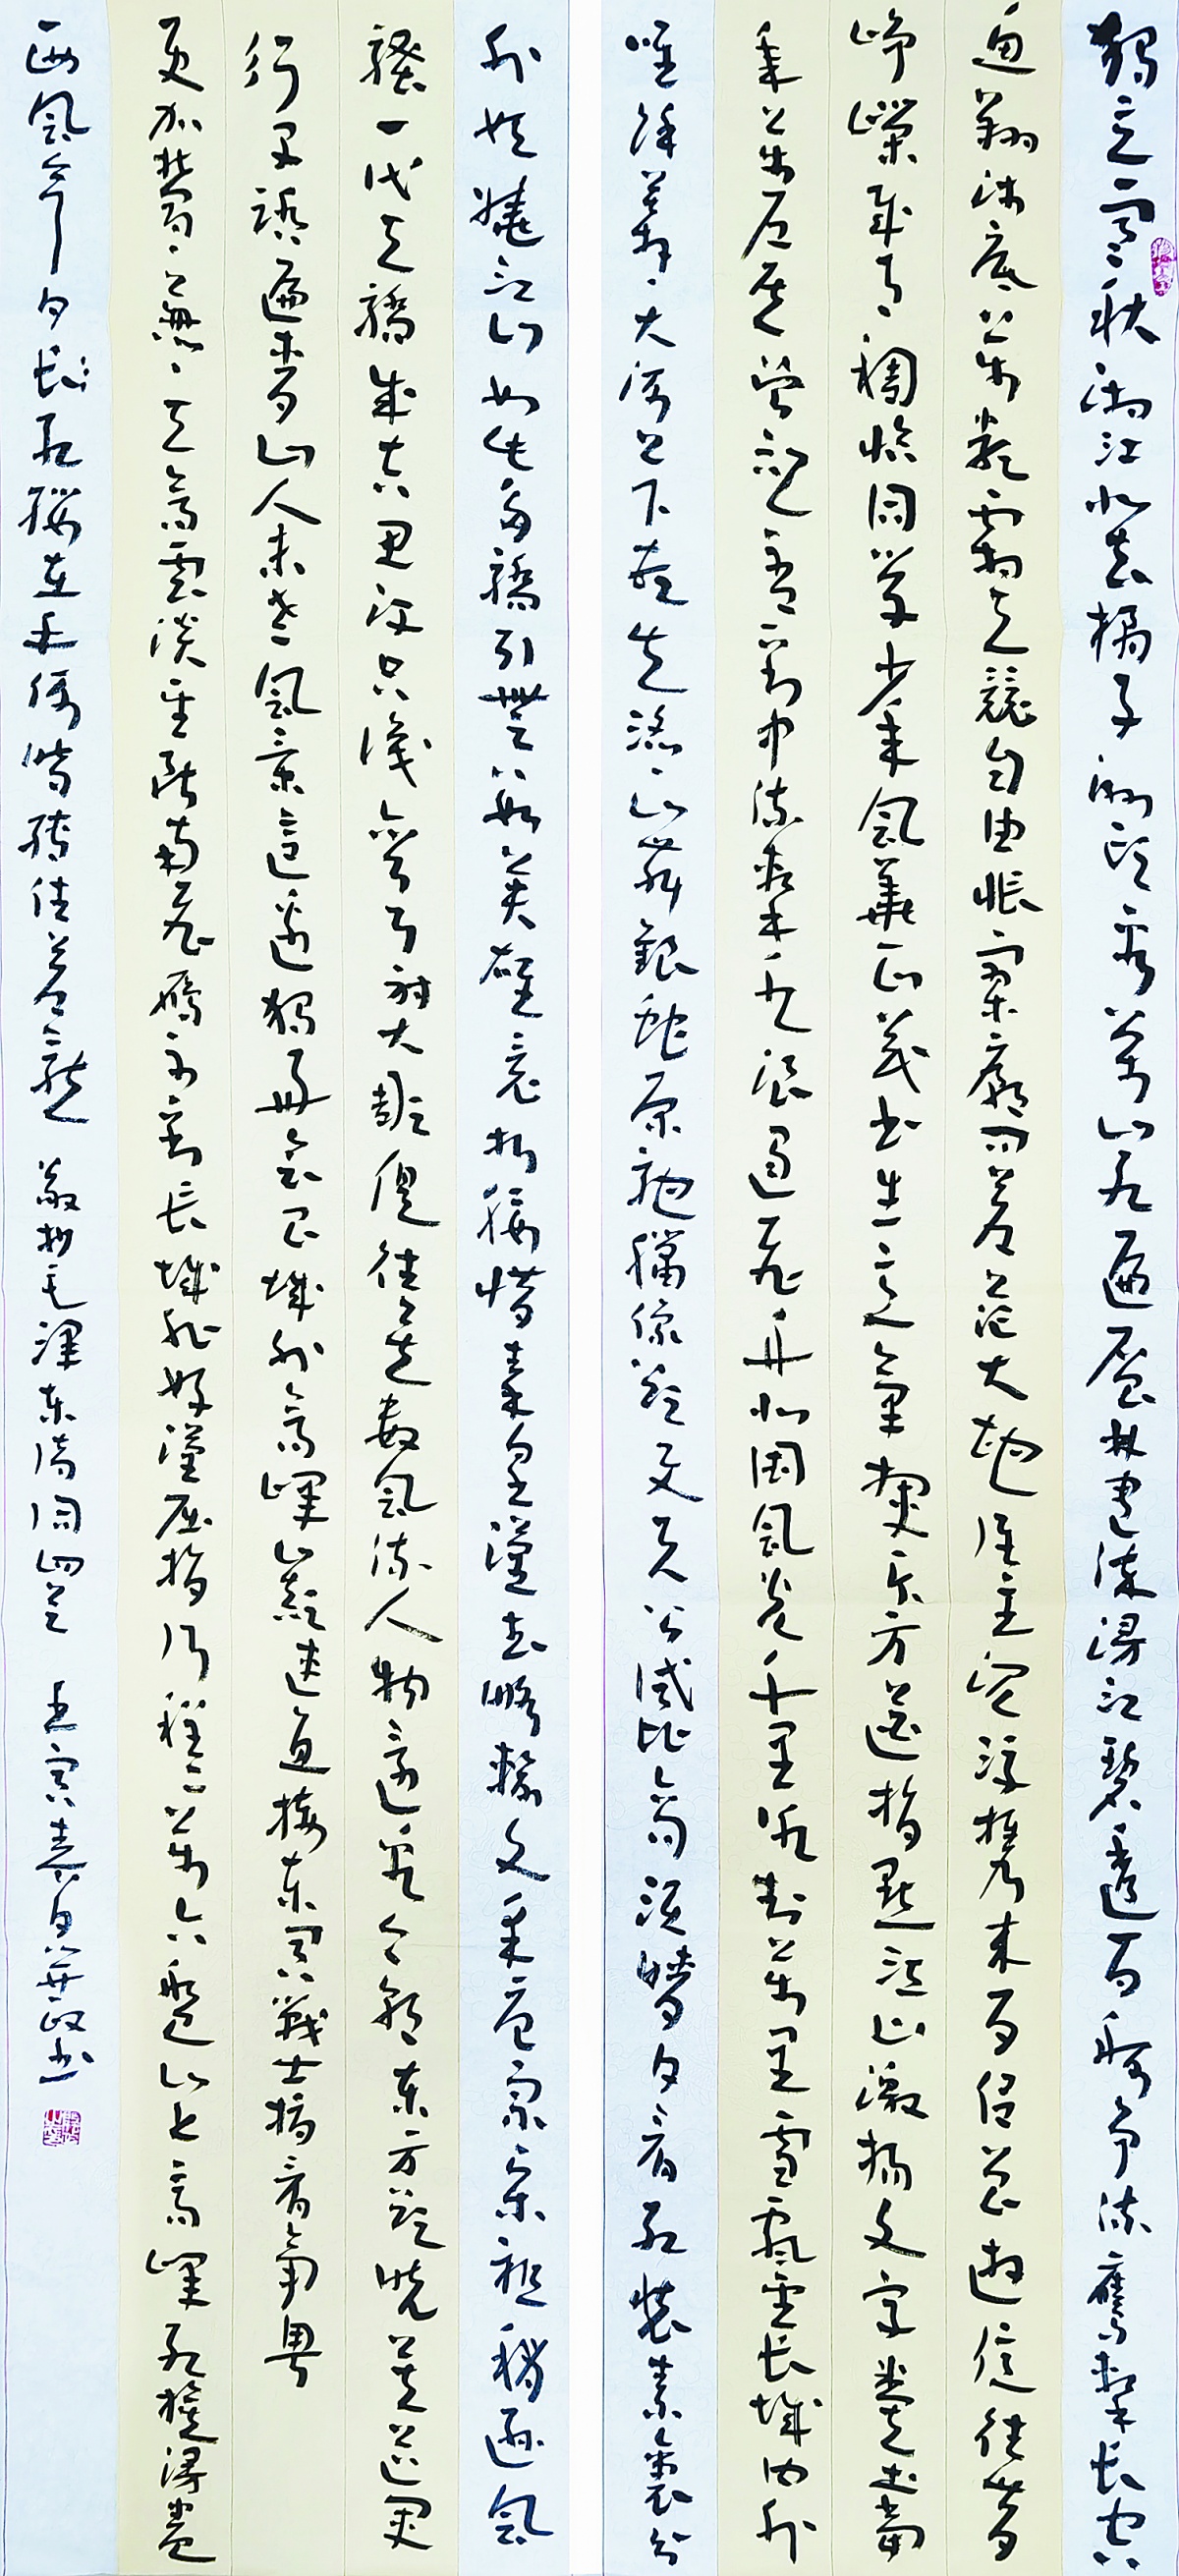 獨立寒秋湘江北去橘子洲頭看萬山紅遍層林盡染漫江碧透百舸爭流鷹擊長空
魚翔淺底萬類霜天競自由悵寥廓問蒼茫大地誰主沉浮攜來百侶曾遊憶往昔
崢嶸歲月稠恰同學少年風華正茂書生意氣揮斥方遒指點江山激揚文字糞土當
年萬戶侯曾記否到中流擊水浪遏飛舟北國風光千里冰封萬里雪飄望長城內外
唯餘莽莽大河上下頓失滔滔山舞銀蛇原馳蠟象欲與天公試比高須晴日看紅裝素裹分
外妖嬈江山如此多嬌引無數英雄競折腰惜秦皇漢武略輸文采唐宗宋祖稍遜風
騷一代天驕成吉思汗只識彎弓射大雕俱往矣數風流人物還看今朝東方欲曉莫道君
行早踏遍青山人未老風景這邊獨好會昌城外高峰顛連直接東溟戰士指看南粵
更加鬱鬱蔥蔥天高雲淡望斷南飛雁不到長城非好漢屈指行程二萬六盤山上高峰紅旗漫卷
西風今日長紅纓在手何時縛住蒼龍 敬抄毛澤東詩詞四首 壬寅春月華政書